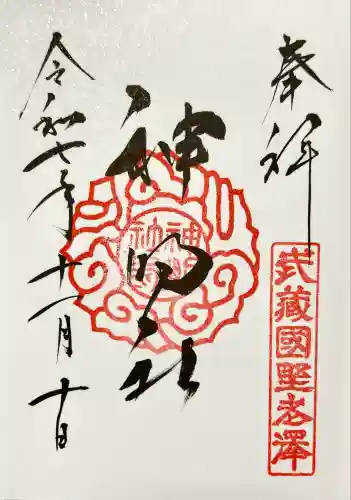 奉拝
武蔵國野老澤
神明社
神明社印
令和七年十一月十日